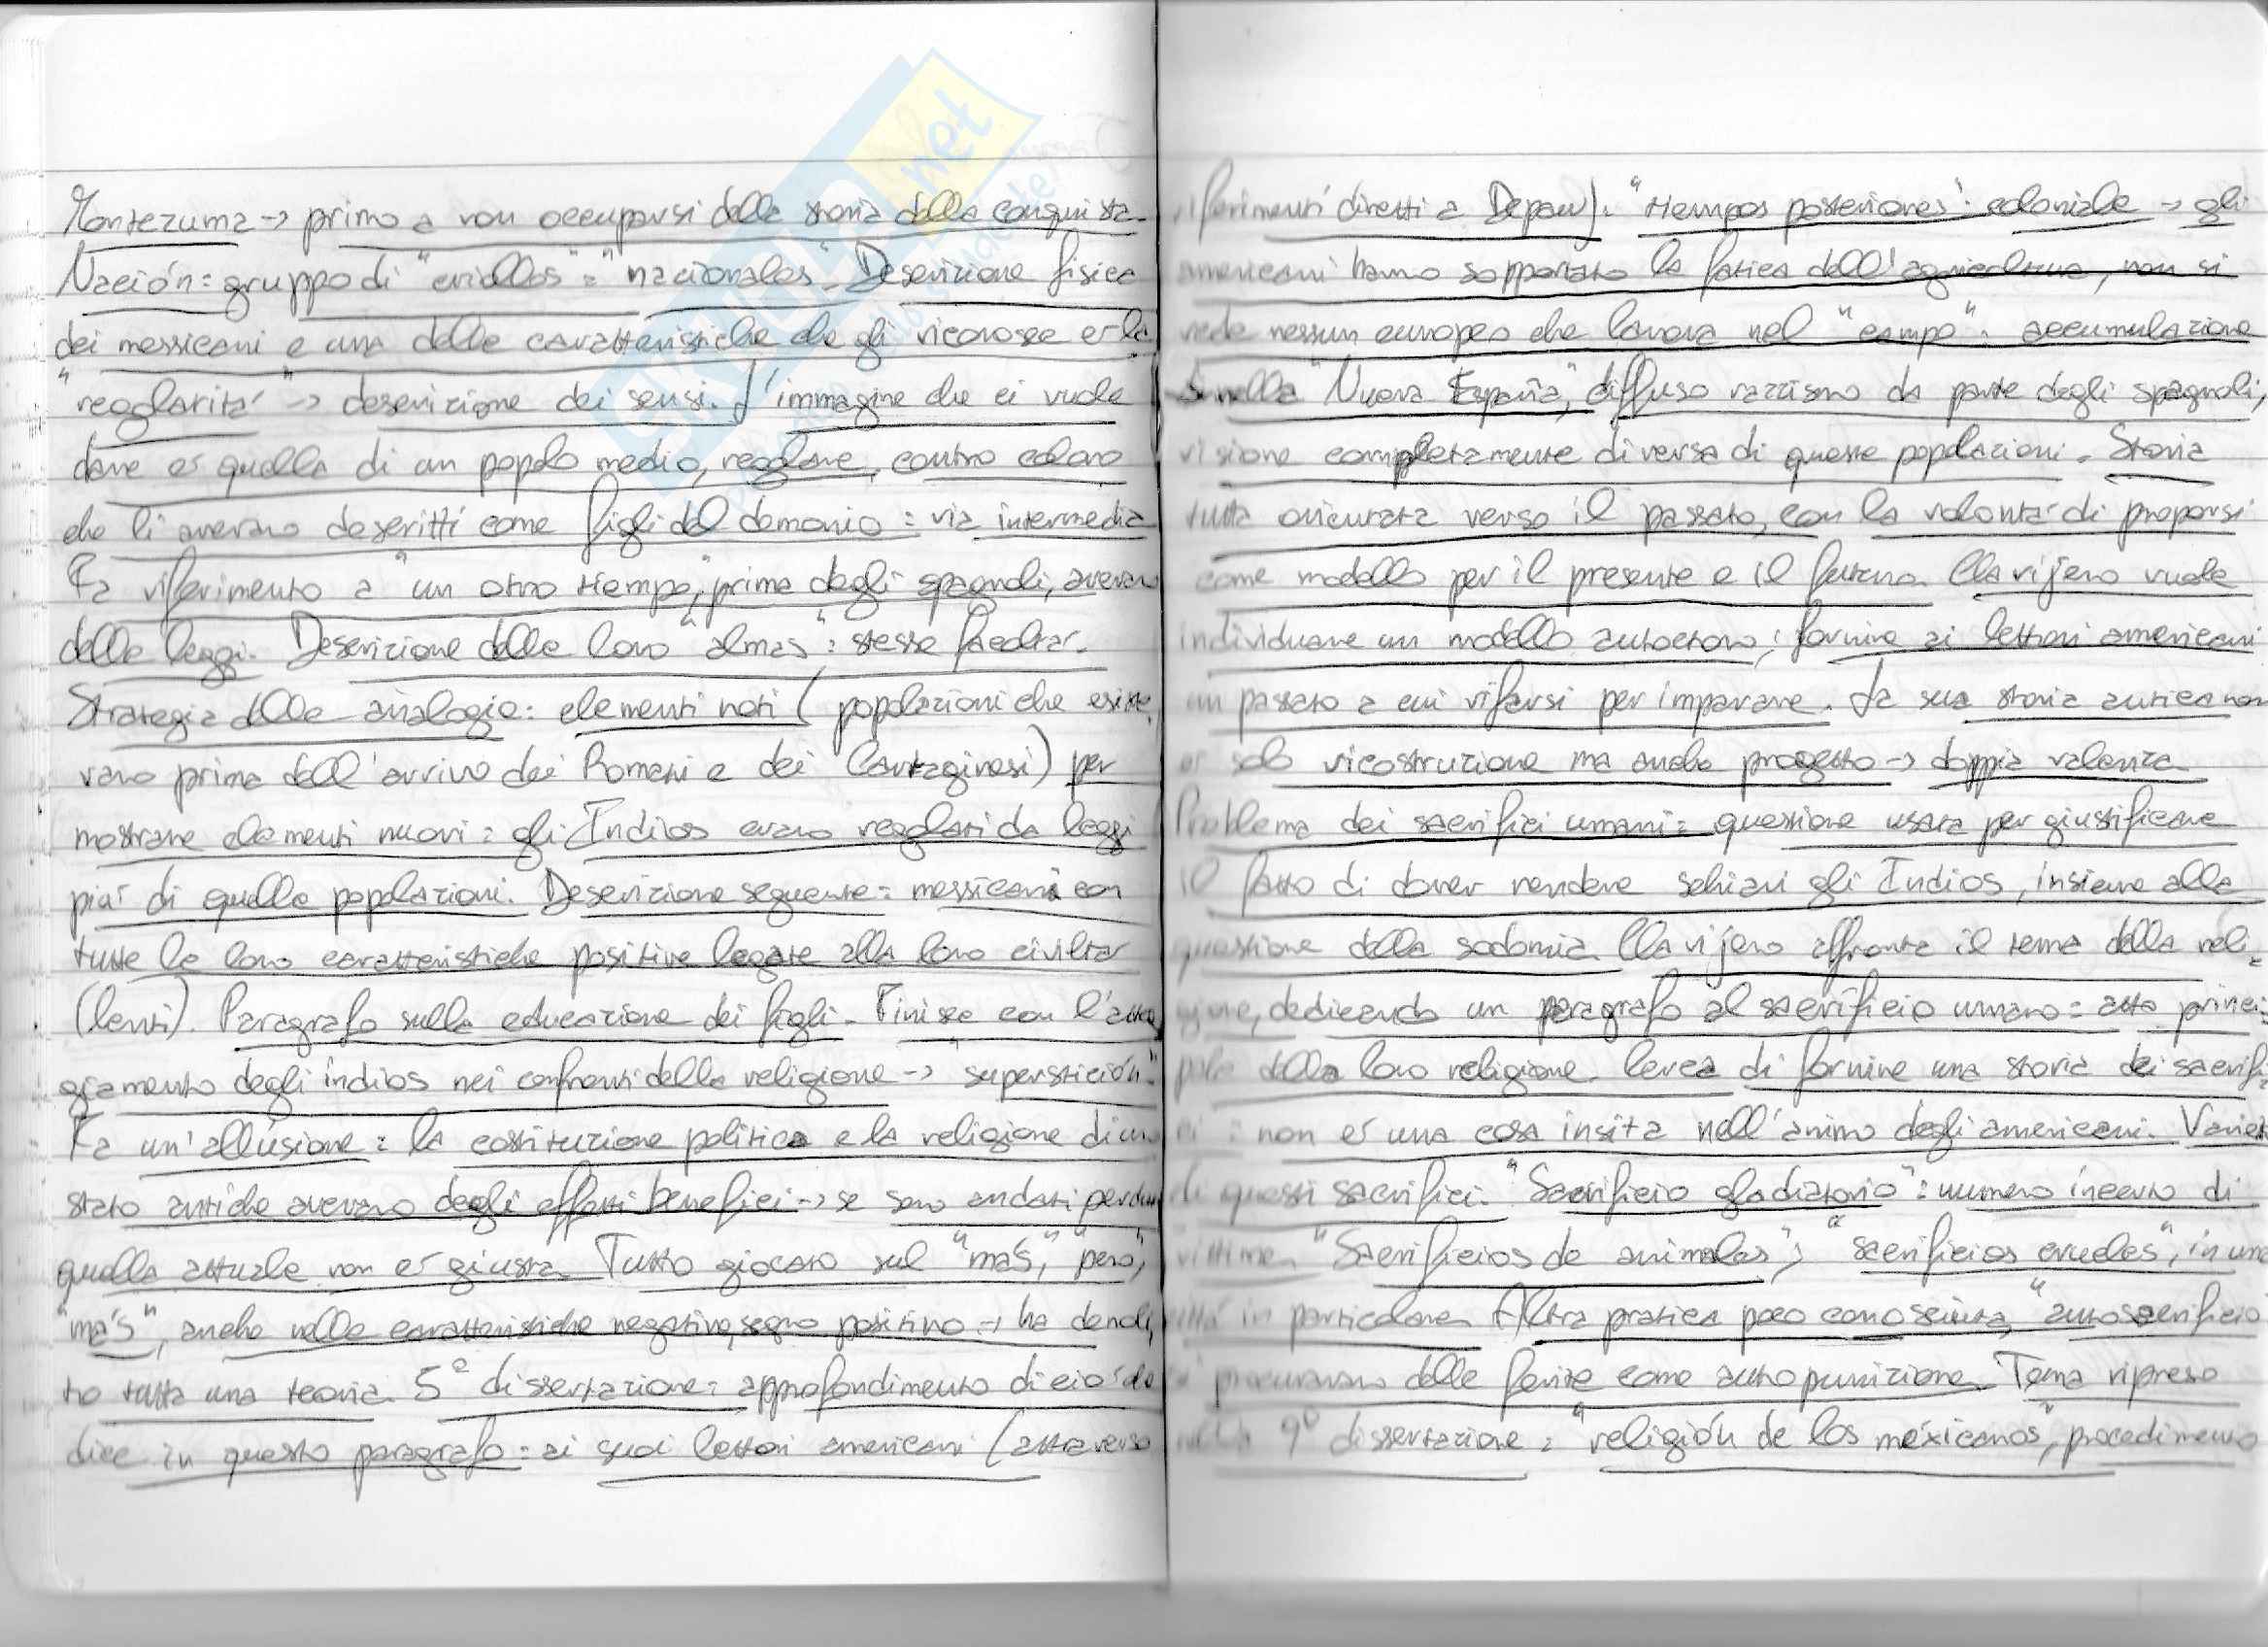 Montezuma → primo a non occuparsi della storia della conquista.
Nación = gruppo di "criollos" = "nacionales". Descrizione fisica
dei messicani e una delle caratteristiche che gli riconosce è la
"regolarità" → descrizione dei sensi. L'immagine che ci vuole
dare è quella di un popolo medio, regolare, contro coloro
che li avevano descritti come figli del demonio = via intermedia
Fa riferimento a "un otro tiempo", prima degli spagnoli, avevano
delle leggi. Descrizione delle loro "almas": stesse facoltà.
Strategia delle analogie: elementi noti (popolazioni che esiste
vano prima dell'arrivo dei Romani e dei Cartaginesi) per
mostrare elementi nuovi = gli Indios erano regolati da leggi
più di quelle popolazioni. Descrizione seguente = messicani con
tutte le loro caratteristiche positive legate alla loro civiltà
(lenti). Paragrafo sulla educazione dei figli. Finisce con l'atteg
giamento degli indios nei confronti della religione → "superstición".
Fa un'allusione = la costituzione politica e la religione di uno
stato antiche avevano degli effetti benefici → se sono andati perduti
quella attuale non è giusta. Tutto giocato sul "más", "pero",
"más", anche nelle caratteristiche negative, segno positivo → ha demoli
to tutta una teoria. 5° dissertazione = approfondimento di ciò che
dice in questo paragrafo = ai suoi lettori americani (attraverso
riferimenti diretti a Depaw). "tiempos posteriores": coloniale → gli
americani hanno sopportato la fatica dell'agricoltura, non si
vede nessun europeo che lavora nel "campo". accumulazione
nella "Nueva España", diffuso razzismo da parte degli spagnoli,
visione completamente diversa di queste popolazioni. Storia
tutta orientata verso il passato, con la volontà di proporsi
come modello per il presente e il futuro. Clavijero vuole
individuare un modello autoctono; fornire ai lettori americani
un passato a cui rifarsi per imparare. La sua storia antica non
è solo ricostruzione ma anche progetto → doppia valenza
Problema dei sacrifici umani = questione usata per giustificare
il fatto di dover rendere schiavi gli Indios, insieme alla
questione della sodomia. Clavijero affronta il tema della reli
gione, dedicando un paragrafo al sacrificio umano = atto princi
pale della loro religione. Cerca di fornire una storia dei sacrifi
ci = non è una cosa insita nell'animo degli americani. Varietà
di questi sacrifici. "Sacrificio gladiatorio" = numero incerto di
vittime. "Sacrificios de animales"; "sacrificios crueles", in una
città in particolare. Altra pratica poco conosciuta, "autosacrificio
si procuravano delle ferite come autopunizione. Tema ripreso
nella 9° dissertazione = "religión de los méxicanos", procedimento